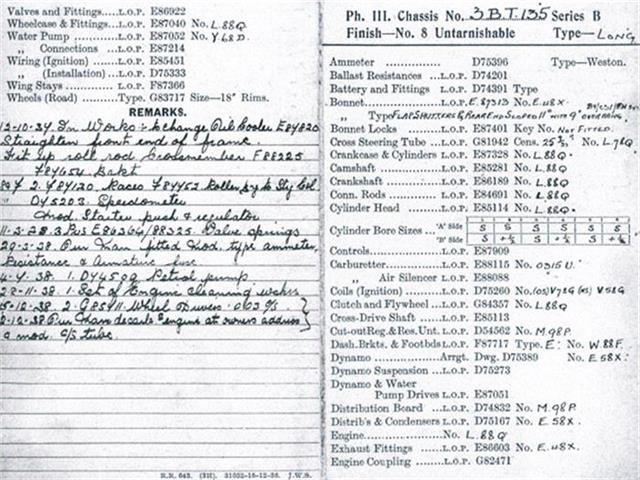 Valves and Fittings.....L.O.P. E86922
Wheelcase & Fittings...L.O.P. E87040 No. L.88Q.
Water Pump ............L.O.P. E87052 No. Y68D.
„ Connections ...L.O.P. E87214
Wiring (Ignition) ......L.O.P. E85451
„ (Installation)...L.O.P. D75333
Wing Stays ..............L.O.P. F87366
Wheels (Road) ..........Type. G83717 Size—18" Rims.
REMARKS.
12-10-34 In Works :- Exchange Oil Cooler E84820
Straighten front end of frame.
Fit up roll rod Crossmember F88225
2 F84120 Races F84452 Roller
D45203. Speedometer
mod. Starter push & regulator
/88525. Valve springs
fitted mod. type ammeter,
Resistance & Armature
4-4-38. 1. D44509 Petrol pump.
28-11-38. 1. Set of Engine cleaning
15-12-38. 2. G85411 Wheel
engine at owners address
& mod. C/S tube.
R.R. 643. (3H). 31052-16-12-36. J.W.S.
Ph. III. Chassis No. 3.B.T.135 Series B
Finish—No. 8 Untarnishable Type—LONG
Ammeter ...............L.O.P. D75396 Type—Weston.
Ballast Resistances ...L.O.P. D74201
Battery and Fittings L.O.P. D74391 Type
Bonnet...................L.O.P. E.87513 No. E.48X.
„ Type FLAP SHUTTERS & REAR END SLOPED 11° WITH 9"
Bonnet Locks .........L.O.P. E87401 Key No. NOT FITTED.
Cross Steering Tube ...L.O.P. G81942 Cens. No. L.76Q
Crankcase & Cylinders L.O.P. E87328 No. L.88Q.
Camshaft ...............L.O.P. E85281 No. L.88Q.
Crankshaft .............L.O.P. E86189 No. L.88Q.
Conn. Rods .............L.O.P. E84691 No. L.88Q
Cylinder Head .........L.O.P. E85114 No. L.88Q.
Cylinder Bore Sizes ... 'A' Side S S S S S S
'B' Side S +½ S +½ S +½
Controls..................L.O.P. E87909
Carburetter..............L.O.P. E88115 No. O315U.
„ Air Silencer L.O.P. E88088
Coils (Ignition).........L.O.P. D75260 No. (OS) V72G (RS) V.52G
Clutch and Flywheel ..L.O.P. G84357 No. L.88Q
Cross-Drive Shaft ......L.O.P. E85113
Cut-out Reg.& Res.Unt. L.O.P. D54562 No. M.98P.
Dash.Brkts. & Footbds L.O.P. F87717 Type. E: No. W.88F.
Dynamo .............Arrgt. Dwg. D75389 No. E58X:
Dynamo Suspension ...L.O.P. D75273
Dynamo & Water
Pump Drives L.O.P. E87051
Distribution Board ...L.O.P. D74832 No. M.98P.
Distrib's & Condensers L.O.P. D75167 No. E.58X.
Engine.................... No. L.88Q
Exhaust Fittings ......L.O.P. E86603 No. E.48X.
Engine Coupling ......L.O.P. G82471